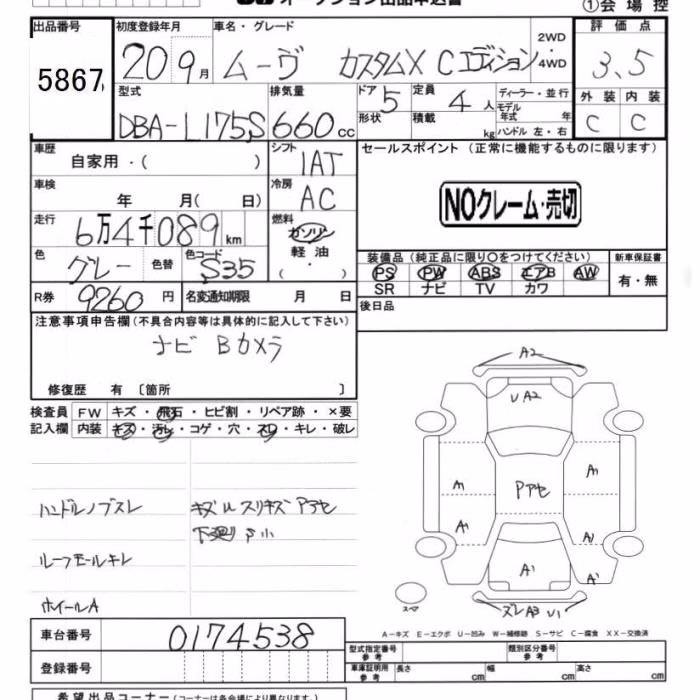 オークション出品申込書
①会場控
出品番号 初度登録年月 車名・グレード 2WD 評価点
5867 20 9月 ムーヴ カスタムX Cエディション ・4WD 3.5
型式 排気量 ドア 5 定員 4人 ディーラー・並行 外装 内装
DBA-L175S 660cc 形状 積載 kg モデル年式 年 C C
ハンドル 左・右
車歴 シフト セールスポイント (正常に機能するものに限ります)
自家用・( ) IAT
車検 冷房 NOクレーム・売切
年 月( 日) AC
走行 燃料
6万4千089km ガソリン
色 色替 色コード 軽油 装備品 (純正品に限り○をつけてください) 新車保証書
グレー S35 ( ・ ) PS PW ABS エアB AW 有・無
SR ナビ TV カワ
R券 9260円 名変通知期限 月 日 後日品
注意事項申告欄 (不具合内容等は具体的に記入して下さい)
ナビ Bカメラ
修復歴 有 〔箇所 〕
検査員 FW キズ・飛石・ヒビ割・リペア跡・×要
記入欄 内装 キズ・汚レ・コゲ・穴・スレ・キレ・破レ
ハンドルノブスレ キズルスリキズ Pアセ
下廻り サ小
ルーフモールキレ
ホイールA
A2
UA2
A1 Pアセ A1
A1 A1
A1 A1
スペア ズレA3 U1
A-キズ E-エクボ U-凹み W-補修跡 S-サビ C-腐食 XX-交換済
車台番号 0174538
型式指定番号 参考 類別区分番号 参考
登録番号 車庫証明用 参考 長さ cm 幅 cm 高さ cm
希望出品コーナー (コーナーは各会場により異なります。)